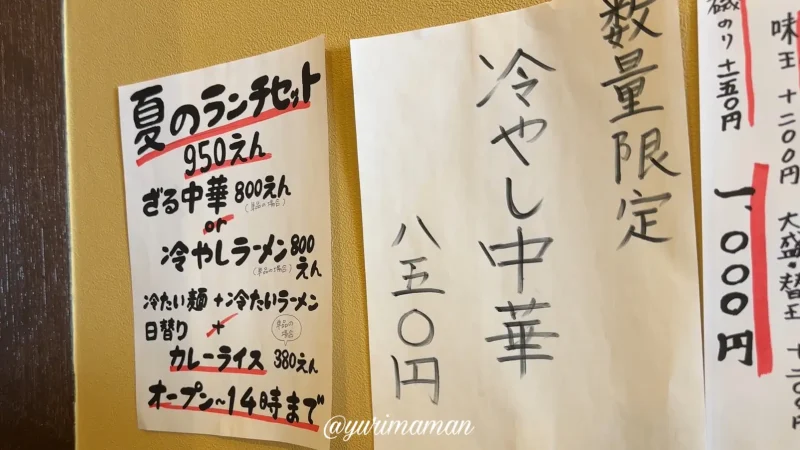 夏のランチセット
950えん
ざる中華 800えん
(単品の場合)
or
冷やしラーメン 800えん
(単品の場合)
冷たい麺 + 冷たいラーメン
日替り +
単品の場合
カレーライス 380えん
オープン~14時まで
数量限定
冷やし中華
八五〇円
磯のり 十一五〇円
一、〇〇〇円
味玉 十一〇〇円
大盛・替玉 十一〇〇円
@yurimaman